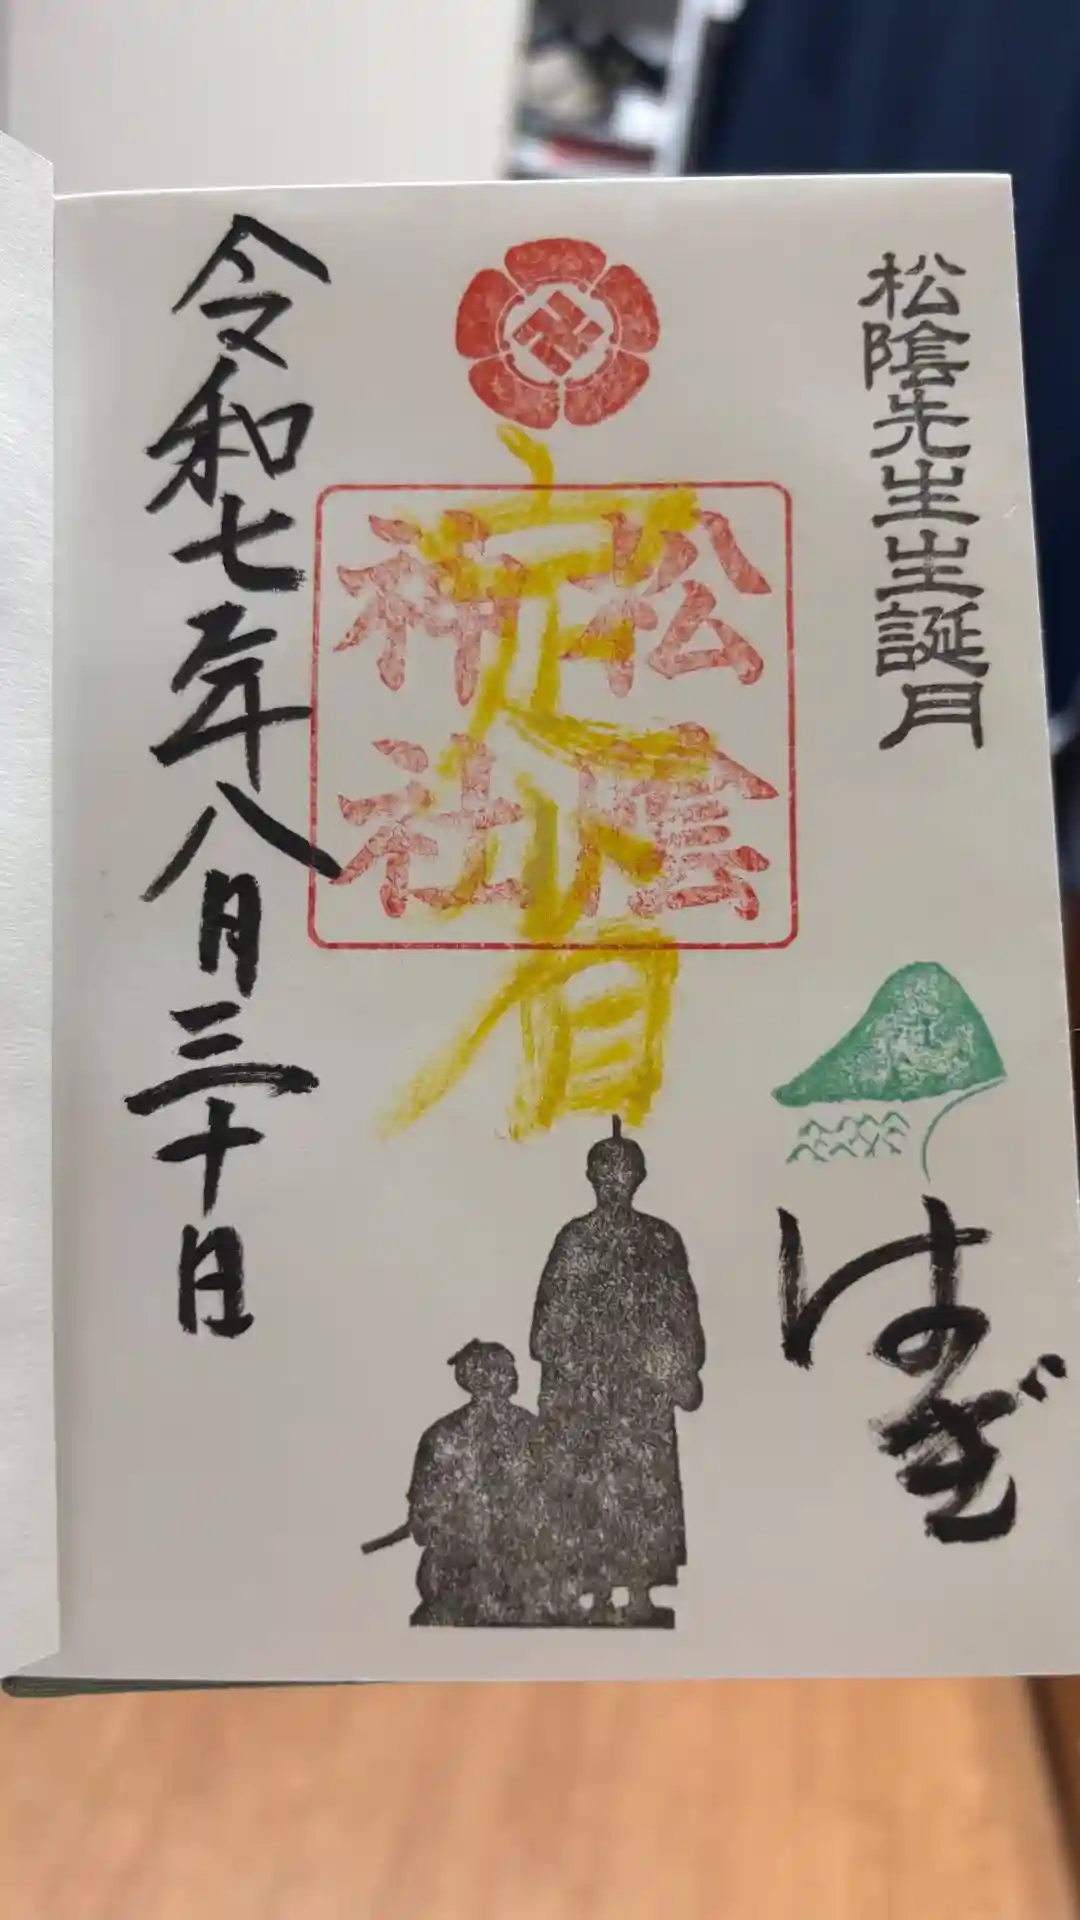 松陰先生生誕月
はぎ
定省
松陰
神社
令和七年八月三十日